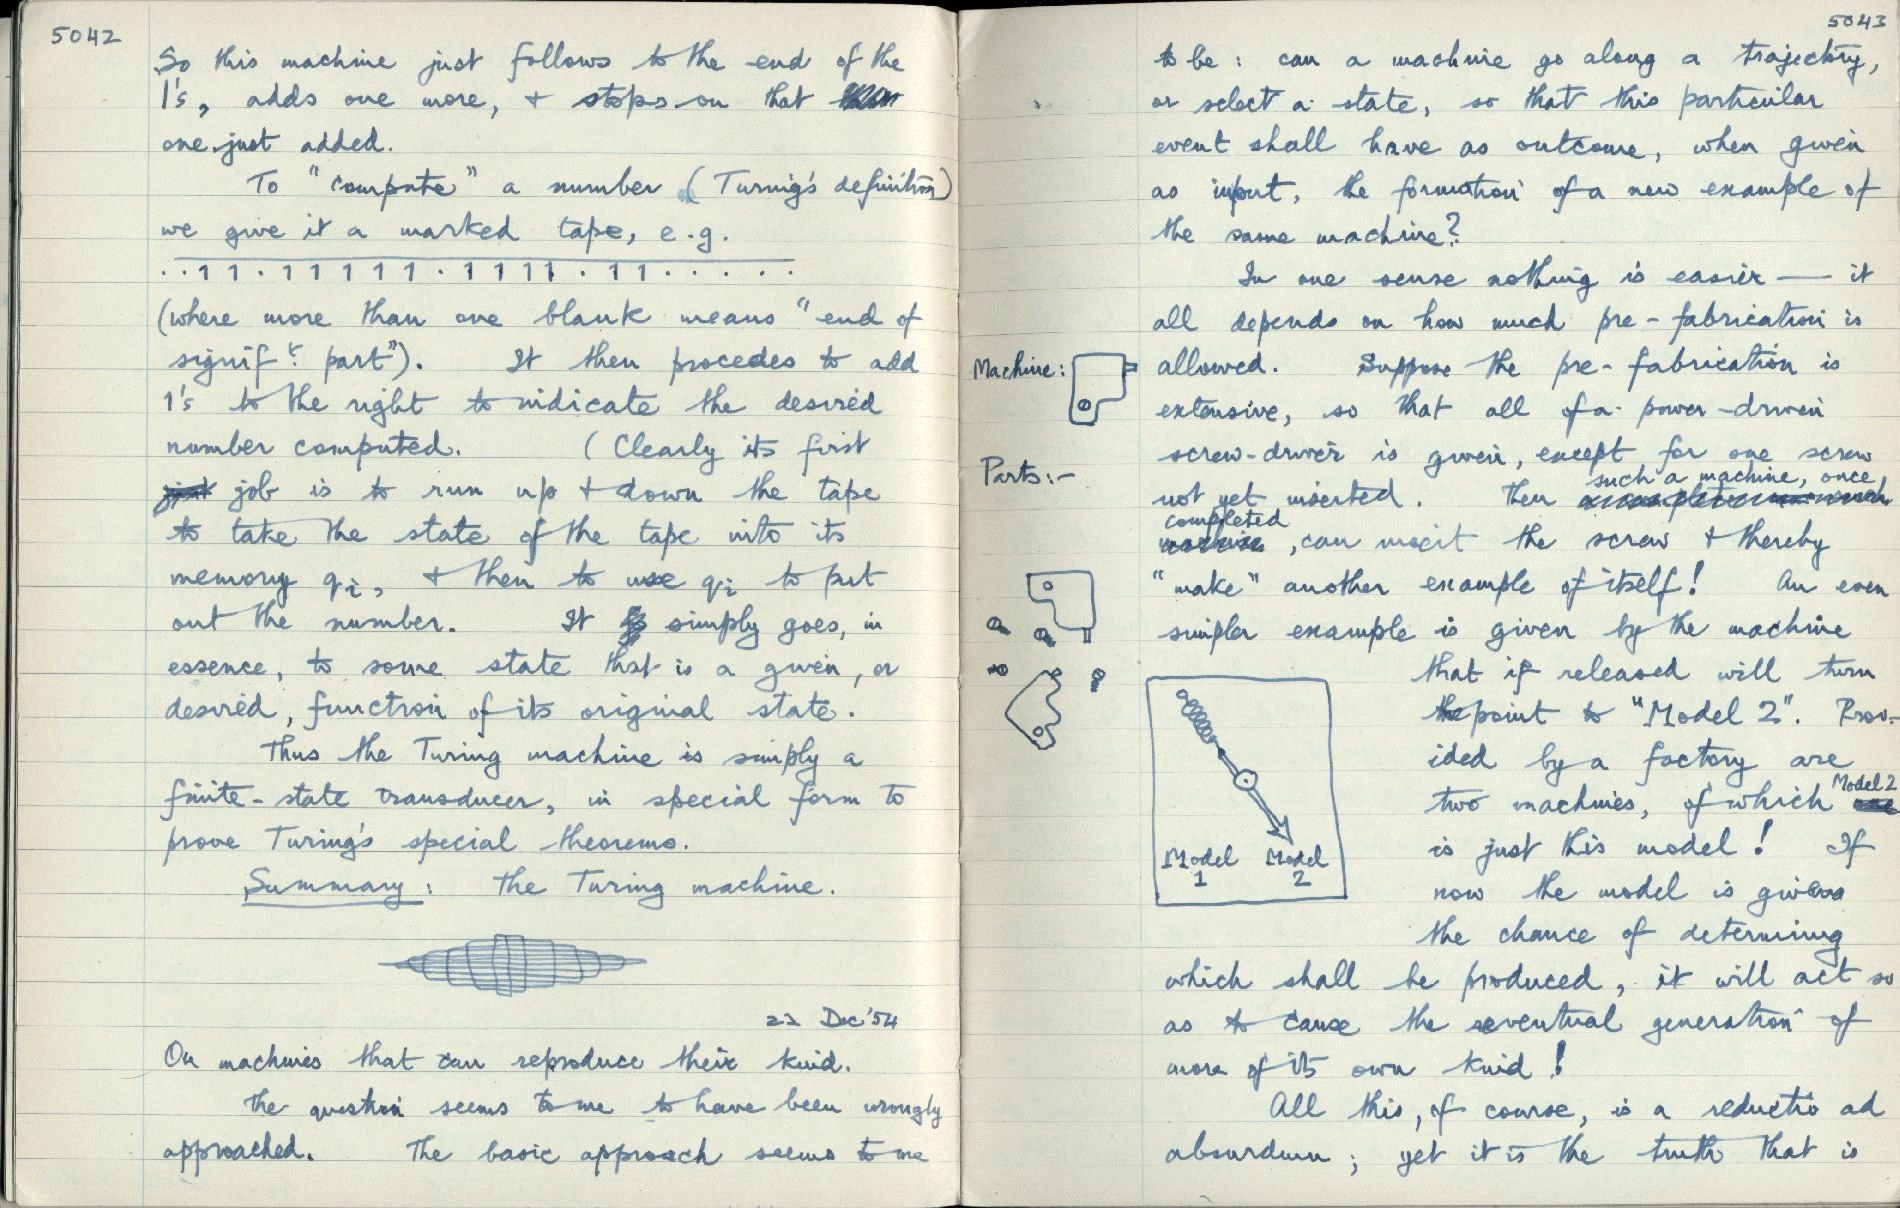 5042
So this machine just follows to the end of the
1's, adds one more, & stops on that
one just added.
To "compute" a number (Turing's definition)
we give it a marked tape, e.g.
. . 1 1 . 1 1 1 1 1 . 1 1 1 1 . 1 1 . . . . .
(where more than one blank means "end of
signift part"). It then procedes to add
1's to the right to indicate the desired
number computed. (Clearly its first
job is to run up & down the tape
to take the state of the tape into its
memory qi, & then to use qi to put
out the number. It simply goes, in
essence, to some state that is a given, or
desired, function of its original state.
Thus the Turing machine is simply a
finite-state transducer, in special form to
prove Turing's special theorems.
Summary: The Turing machine.
22 Dec '54
On machines that can reproduce their kind.
The question seems to me to have been wrongly
approached. The basic approach seems to me
5043
to be: can a machine go along a trajectory,
or select a state, so that this particular
event shall have as outcome, when given
as input, the formation of a new example of
the same machine?
In one sense nothing is easier — it
all depends on how much pre-fabrication is
allowed. Suppose the pre-fabrication is
extensive, so that all of a power-driven
screw-driver is given, except for one screw
not yet inserted. Then such a machine, once
completed, can insert the screw & thereby
"make" another example of itself! An even
simpler example is given by the machine
that if released will turn
to point to "Model 2". Prov-
ided by a factory are
two machines, of which Model 2
is just this model! If
now the model is given
the chance of determining
which shall be produced, it will act so
as to cause the eventual generation of
more of its own kind!
All this, of course, is a reductio ad
absurdum; yet it is the truth that is
Machine:
Parts:-
Model 1
Model 2